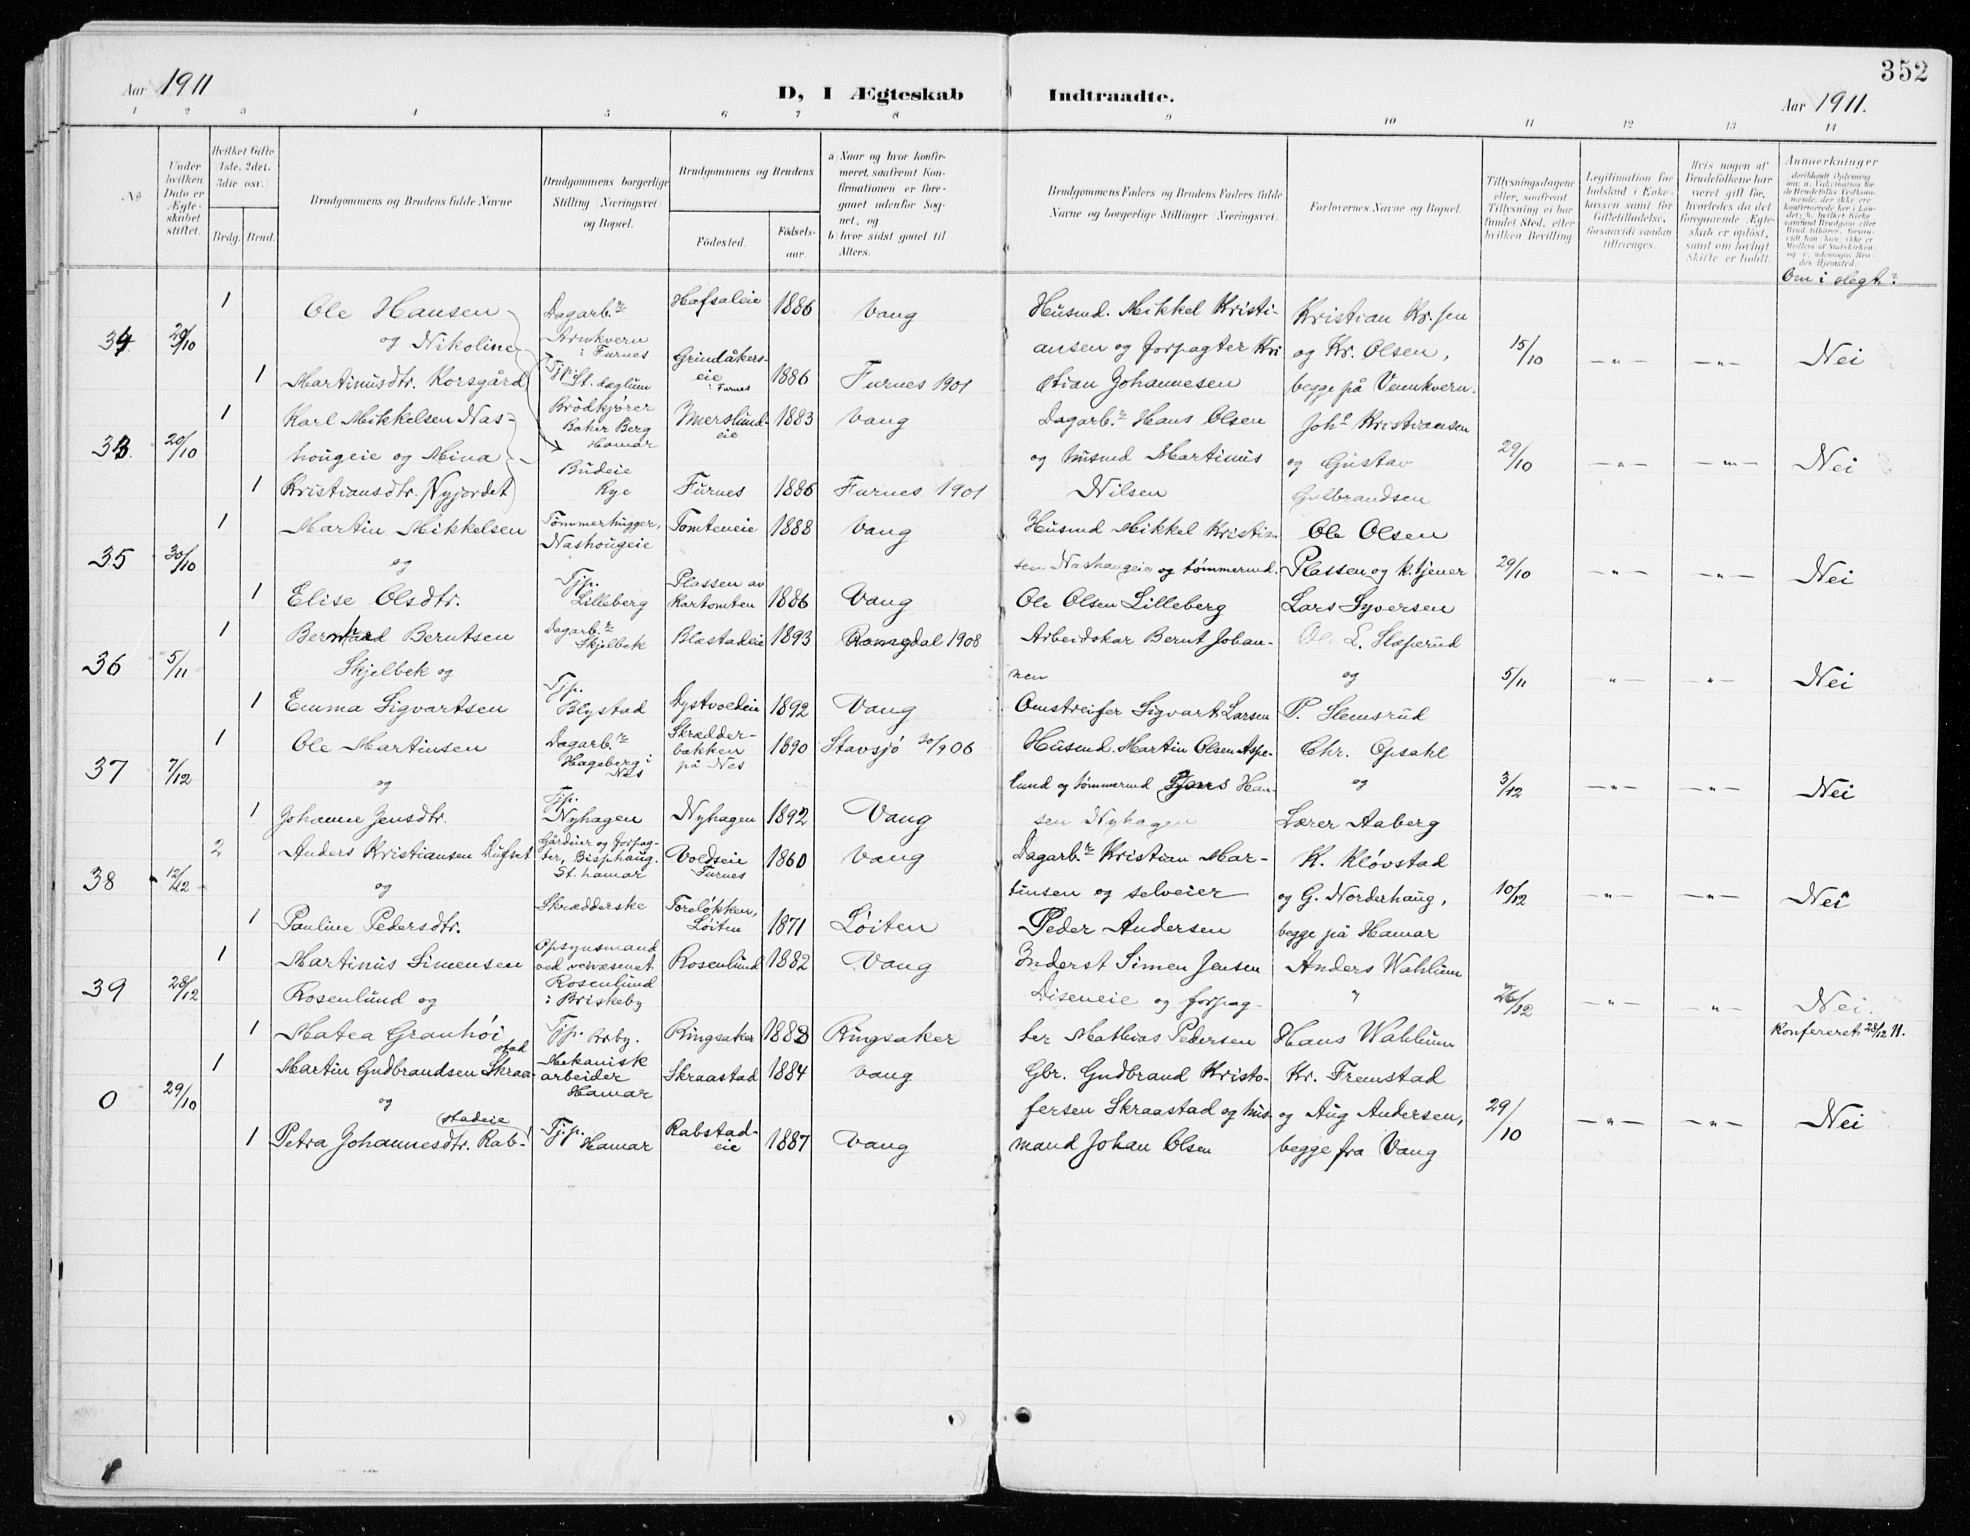 352
Aar 1911
D, I Ægteskab Indtraadte.
Aar 1911.
1 2 3 4 5 6 7 8 9 10 11 12 13 14
No
Under hvilken Dato er Ægteskabet stiftet.
Hvilket Gifte 1ste, 2det, 3die osv.)
Brdg. Brud.
Brudgommens og Brudens fulde Navne
Brudgommens borgerlige Stilling (Næringsvei) og Bopæl.
Brudgommens og Brudens
Födested.
Födselsaar.
a) Naar og hvor konfirmeret, saafremt Konfirmationen er foregaaet udenfor Sognet, og
b) hvor sidst gaaet til Alters.
Brudgommens Faders og Brudens Faders fulde Navne og borgerlige Stillinger (Næringsvei).
Forlovernes Navne og Bopæl.
Tillysningsdagene eller, saafremt Tillysning ei har fundet Sted, efter hvilken Bevilling.
Legitimation for Indskud i Enkekassen samt for Giftetilladelse, forsaavidt saadan tiltrænges.
Hvis nogen af Brudefolkene har været gift før, hvorledes da det foregaaende Ægteskab er opløst, samt om lovligt Skifte er holdt.
Anmærkninger
Om i slegt?
1 Ole Hansen Dagarb.r Hafsaleie 1886 Vang Husmd. Mikkel Kristi- Kristian Kr.sen
34. 20/10 og Nikoline Arnkvern i Furnes ansen og forpagter Kri og Kr. Olsen, 15/10 Nei
1 Martinusdtr. Korsgård Tjp. St. Grindåkers- eie i Furnes 1886 Furnes 1901 stian Johannesen begge på
1 Karl Mikkelsen Nas- Brödkjører Baker Berg Hamar Ymerslund- eie 1883 Vang Dagarb.r Hans Olsen Joh.s Kristiansen
33. 20/10 hougeie og Mina og husmd Martinus og Gustav 29/10 Nei
1 Kristiansdtr. Nyjordet Budeie Rye Furnes 1886 Furnes 1901 Nilsen Gulbrandsen
1 Martin Mikkelsen Tømmerhugger, Nashougeie Tomteneie 1888 Vang Husmd Mikkel Kristian- Ole Olsen
35 30/10 og sen Nashaugeie og tømmermd. Plassen og k.tjener 29/10 Nei
1 Elise Olsdtr. Tjp. Lilleberg Plassen av Kartomten 1886 Vang Ole Olsen Lilleberg Lars Syversen
1 Bernhard Berntsen Dagarb.r Skjelbek Blæstadeie 1893 Romsdal 1908 Arbeidskar Bernt Johan- Ole L. Slæperud
36 5/11 Skjelbek og nen og 5/11 Nei
1 Emma Sigvartsen Tjp. Blystad Dystvoldeie 1892 Vang Omstreifer Sigvart Larsen P. Slemsrud
1 Ole Martinsen Dagarb.r Hageberg i Nes Skrædder- bakken på Nes 1890 Stavsjø 30/9 06 Husmd. Martin Olsen Aspe- Chr. Opsahl
37 7/12 og lund og tømmermd Jens Han- og 3/12 Nei
1 Johanne Jensdtr. Tjp. Nyhagen Nyhagen 1892 Vang sen Nyhagen Lærer Aaberg
2 Anders Kristiansen Dufset Gårdeier og forpag- ter, Bisphaug, St. hamar Voldseie Furnes 1860 Vang Dagarb.r Kristian Mar- K. Kløvstad
38 12/12 og tinsen og selveier og G. Norderhaug, 10/12 Nei
1 Pauline Pedersdtr. Skrædderske Toreløkken, Løiten 1871 Løiten Peder Andersen begge på Hamar
1 Martinus Simensen Opsynsmand ved veivæsenet Rosenlund 1882 Vang Inderst Simen Jensen Anders Wahlum
39 28/12 Rosenlund og Rosenlund i Briskeby Diseneie og forpag- " 26/12 Nei.
1 Matea Granhøi Tjp. Ringsaker 1883 Ringsaker ter Mathias Pedersen Hans Wahlum Konfereret 28/12 11.
1 Martin Gudbrandsen Skraa- stad Mekanisk arbeider Hamar Skraastad 1884 Vang Gbr. Gudbrand Kristo- Kr. Fremstad
0 29/10 og fersen Skraastad og hus- og Aug Andersen, 29/10 Nei
1 Petra Johannesdtr. Rab- stadeie Tjp. Hamar Rabstad- eie 1887 Vang mand Johan Olsen begge fra Vang